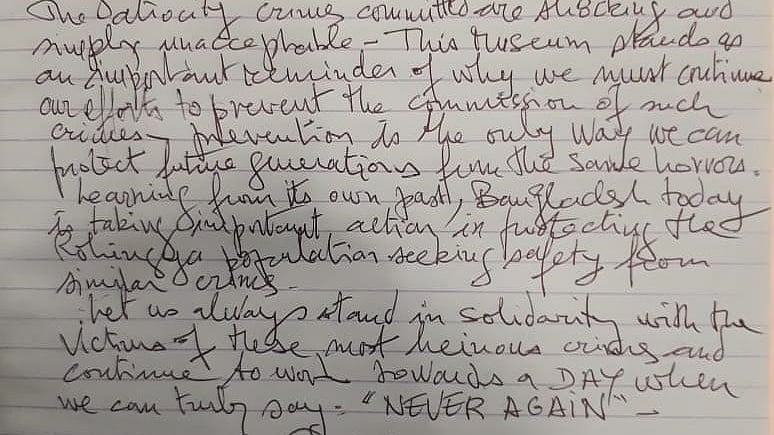 The atrocity crimes committed are shocking and
simply unacceptable - This museum stands as
an important reminder of why we must continue
our efforts to prevent the commission of such
crimes - prevention is the only way we can
protect future generations from the same horrors.
Learning from its own past, Bangladesh today
is taking important action in protecting the
Rohingya population seeking safety from
similar crimes.
Let us always stand in solidarity with the
victims of these most heinous crimes and
continue to work towards a DAY when
we can truly say: "NEVER AGAIN" -